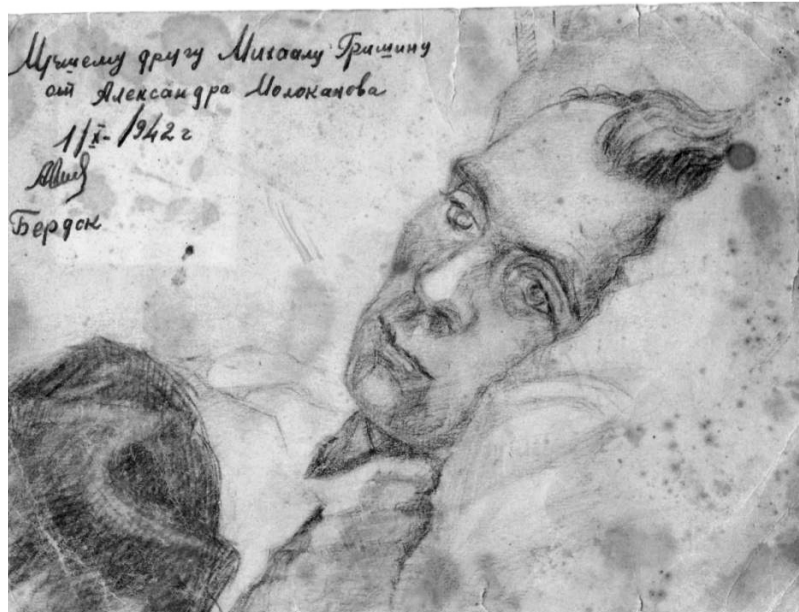 Лучшему другу Михаилу Гришину
от Александра Молоканова
1/X-1942 г
Бердск